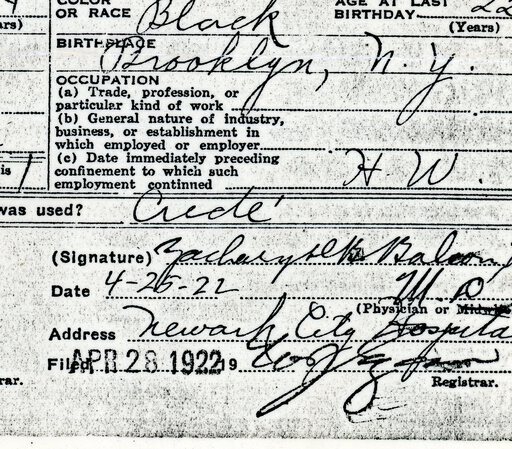 COLOR
OR RACE Black
AGE AT LAST
BIRTHDAY 22
(Years)
BIRTHPLACE
Brooklyn, N. Y.
OCCUPATION
(a) Trade, profession, or
particular kind of work
(b) General nature of industry,
business, or establishment in
which employed or employer
(c) Date immediately preceding
confinement to which such
employment continued H W.
was used? Credé
(Signature)
Date 4-25-22 M. D.
(Physician or Midwife
Address Newark City Hospital
Filed APR 28 1922 19
Registrar.